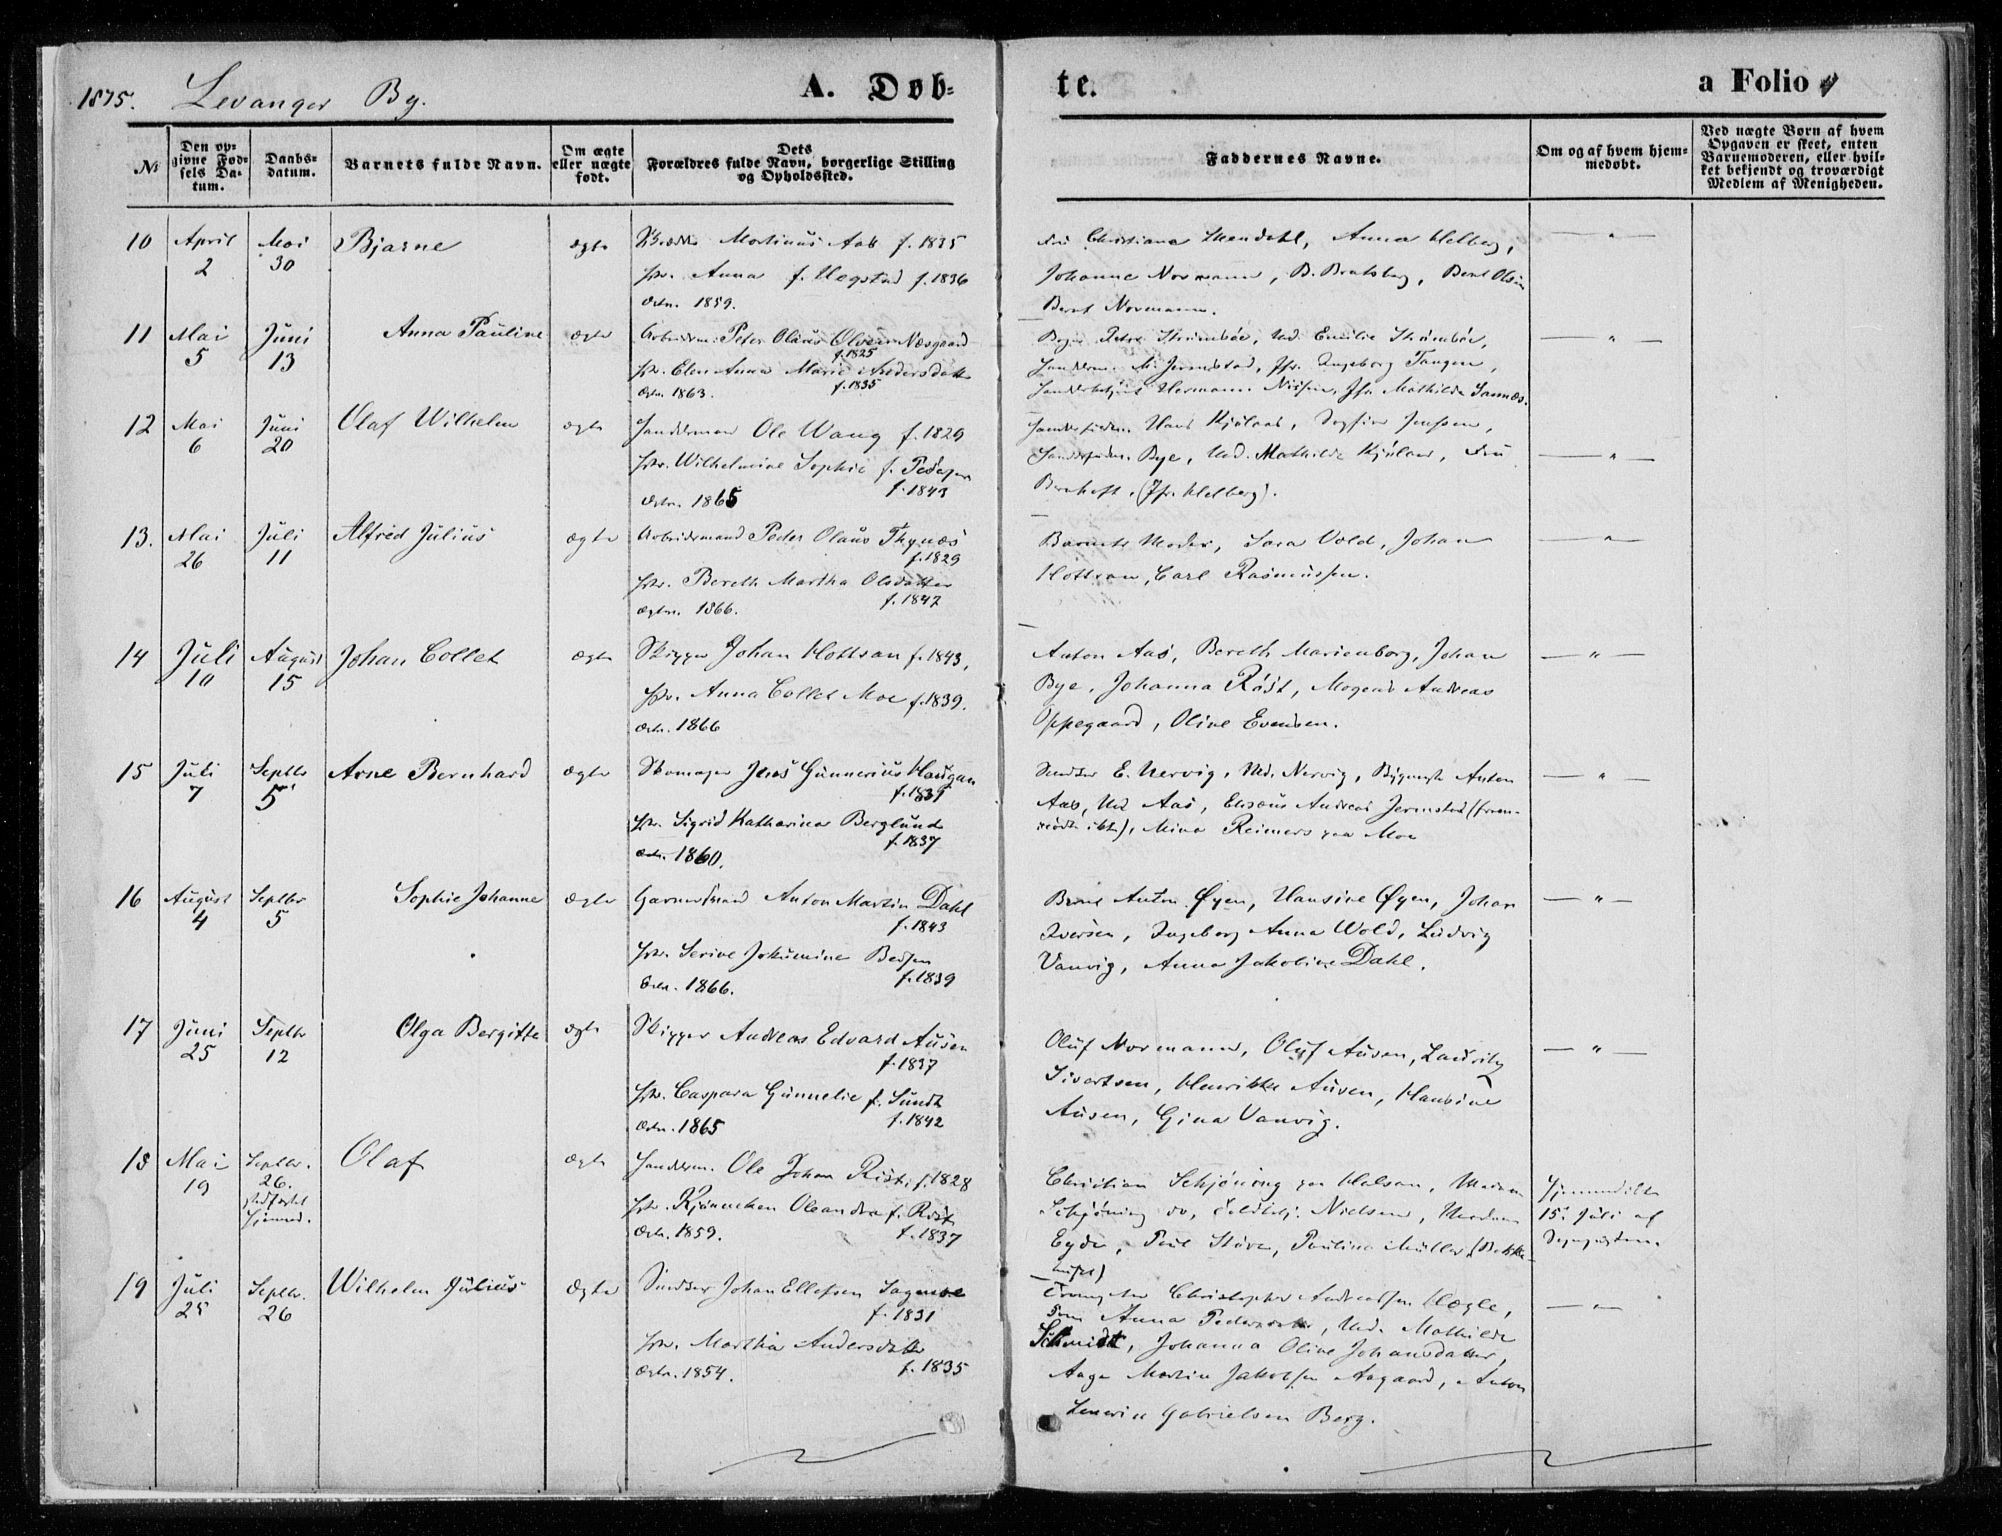 1875. Levanger By.
A. Døb-
te.
a Folio 4
No
Den op-
givne Fød-
sels Da-
tum.
Daabs-
datum.
Barnets fulde Navn.
Om ægte
eller uægte
født.
Dets
Forældres fulde Navn, borgerlige Stilling
og Opholdssted.
Faddernes Navne.
Om og af hvem hjem-
medøbt.
Ved uægte Børn af hvem
Opgaven er skeet, enten
Barnemoderen, eller hvil-
ket bekjendt og troværdigt
Medlem af Menigheden.
10 April 2 Mai 30 Bjarne ægte Martinus Aas f. 1835
Anna f. Hegstad f. 1836
1859.
Christiane, Anna Kelberg,
Johanne Normann, B. Bratsberg, Bernt Olsen
Bernt Normann.
11 Mai 5 Juni 13 Anna Pauline ægte Arbeidsm. Peter Olaus Olsen Næsgaard
f. 1825
Elen Anna Marie Andersdatter
f. 1835
1863.
Petra Strømbøe, Md. Emilie Strømbøe,
M. Jermstad, Jfr. Ingeborg Tangen,
Hermann Nissen, Jfr. Mathilde Sannæs.
12 Mai 6 Juni 20 Olaf Wilhelm ægte Handelsmand Ole Wang f. 1829
Wilhelmine Sophie f. Petersen
f. 1843
1865
Hans Kjølaas, Jenssen,
Bye, Md. Mathilde Kjølaas, Fru
Bernhoft. (Jfr. Kelberg).
13. Mai 26 Juli 11 Alfred Julius ægte Arbeidsmand Peder Olaus Thynæs
f. 1829
Bereth Martha Olsdatter
f. 1847
1866.
Barnets Moder, Sara Vold, Johan
Hottran, Carl Rasmussen.
14 Juli 10 August 15 Johan Collet ægte Skipper Johan Hottran f. 1843,
Anna Collet Moe f. 1839.
1866
Anton Aas, Bereth Marienborg, Johan
Bye, Johanna Röst, Mogens Andreas
Oppegaard, Oline Evensen.
15 Juli 7 Septbr 5 Arne Bernhard ægte Skomager Jens Gunnerius Haugan
f. 1839
Sigrid Katharina Berglund
f. 1837
1860.
Snedker E. Nervig, Md. Nervig, Anton
Aas, Md Aas, Andreas Jermstad (frem-
mödte ikke), Mina Reimers paa Moe
16 August 4 Septbr 5 Sophie Johanne ægte Anton Martin Dahl
f. 1843
Serine
f. 1839
1866.
Bernt Anton Øyen, Hansine Øyen, Johan
Iversen, Ingeborg Anna Wold, Ludvig
Vanvig, Anna Jakobine Dahl.
17 Juni 25 Septbr 12 Olga Bergitte ægte Skipper Andreas Edvard Ausen
f. 1837
Caspara Gunnelie f. Sundt
f. 1842
1865
Oluf Normann, Oluf Ausen, Lauritz
Sivertsen, Henrikke Ausen, Hansine
Ausen, Gina Vanvig.
18 Mai 19 Septbr. 26. stadfæstet Hjemmed. Olaf ægte Handelsm. Ole Johan Röst, f. 1828
f. Röst
f. 1837
1859.
Christian Schjöning paa Halsan, Madam
Schjöning do, Nielsen, Madam
Eyde, Paul Støre, Paulina Müller
Hjemmedöbt
15. Juli af
19 Juli 25 Septbr. 26 Wilhelm Julius ægte Snedker Johan Ellefsen Sagmoe
f. 1831
Martha Andersdatter
f. 1835
1854.
Christopher Andreassen Hægle,
Anna Pedersdatter, Md. Mathilde
Schmidt, Johanna Oline Johansdatter,
Aage Martin Jakobsen Aagaard, Anton
Gabrielsen Berg.